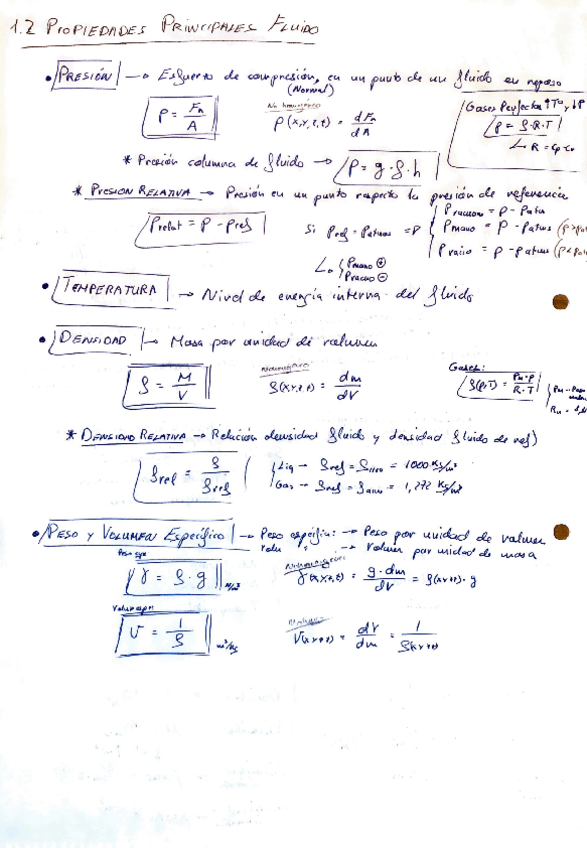 1.2 PROPIEDADES PRINCIPALES FLUIDO
• PRESIÓN → Esfuerzo de compresión, en un punto de un fluido en reposo
(Normal)
P = Fn / A
No homogéneo
P(x,y,z,t) = dFn / dA
Gases Perfectos ↑Tª y ↓P
p = ρ·R·T
↳ R = Cp Cv
* Presión columna de fluido → P = g·ρ·h
* PRESION RELATIVA → Presión en un punto respecto la presión de referencia
Prelat = P - Pref
Si Pref = Patmos ⇒
= P - Patm
Pmano = P - Patmos (P>Pat
Pvacio = P - Patmos (P<Pat
↳ Pmano ⊕
Pvacuo ⊖
• TEMPERATURA → Nivel de energía interna del fluido
• DENSIDAD → Masa por unidad de volumen
ρ = M / V
ρ(x,y,z,t) = dm / dV
Gases:
ρ(P,T) = Pm·P / R·T
* DENSIDAD RELATIVA → Relación densidad fluido y densidad fluido de ref)
ρrel = ρ / ρref
Liq → ρref = = 1000 Kg/m³
Gas → ρref = ρaire = 1,272 Kg/m³
• PESO Y VOLUMEN ESPECÍFICO → Peso específico: → Peso por unidad de volumen
volu " : → Volumen por unidad de masa
Peso esp
γ = ρ·g N/m³
γ(x,y,z,t) = g·dm / dV = ρ(x,y,z,t)·g
Volumen esp
V = 1 / ρ m³/kg
V(x,y,z,t) = dV / dm = 1 / ρ(x,y,z,t)